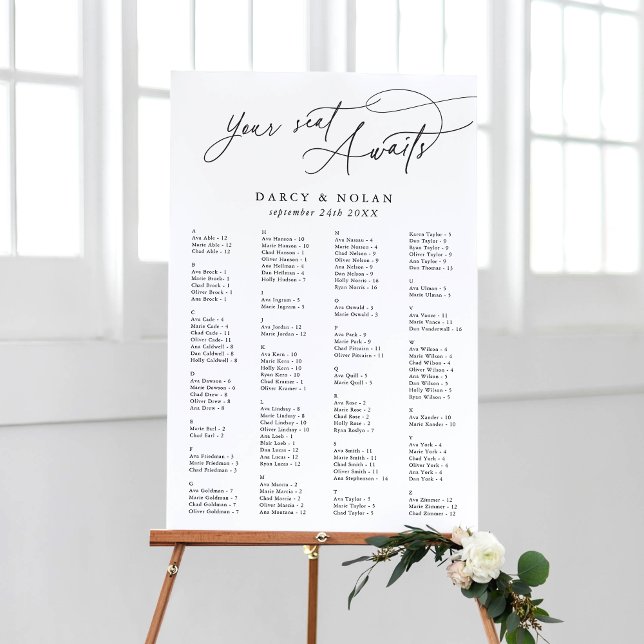 Your seat
Awaits
DARCY & NOLAN
september 24th 20XX
A
Ava Able - 12
Marie Able - 12
Chad Able - 12
B
Ava Brock - 1
Marie Brock - 1
Chad Brock - 1
Oliver Brock - 1
Ana Brock - 1
C
Ava Cade - 4
Marie Cade - 4
Chad Cade - 11
Oliver Cade - 11
Ana Caldwell - 8
Dan Caldwell - 8
Holly Caldwell - 8
D
Ava Dawson - 6
Marie Dawson - 6
Chad Drew - 8
Oliver Drew - 8
Ana Drew - 8
E
Marie Earl - 2
Chad Earl - 2
F
Ava Friedman - 3
Marie Friedman - 3
Chad Friedman - 3
G
Ava Goldman - 7
Marie Goldman - 7
Chad Goldman - 7
Oliver Goldman - 7
H
Ava Hanson - 10
Marie Hanson - 10
Chad Hanson - 1
Oliver Hanson - 1
Ana Hellman - 4
Dan Hellman - 4
Holly Hudson - 7
I
Ava Ingram - 5
Marie Ingram - 5
J
Ava Jordan - 12
Marie Jordan - 12
K
Ava Kern - 10
Marie Kern - 10
Holly Kern - 10
Ryan Kern - 10
Chad Kramer - 1
Oliver Kramer - 1
L
Ava Lindsay - 8
Marie Lindsay - 8
Chad Lindsay - 10
Oliver Lindsay - 10
Ana Loeb - 1
Blair Loeb - 1
Dan Lucas - 12
Ana Lucas - 12
Ryan Lucas - 12
M
Ava Marcia - 2
Marie Marcia - 2
Chad Marcia - 2
Oliver Marcia - 2
Ana Montana - 12
N
Ava Nassau - 4
Marie Nassau - 4
Chad Nelson - 9
Oliver Nelson - 9
Ana Nelson - 9
Dan Nelson - 9
Holly Norris - 16
Ryan Norris - 16
O
Ava Oswald - 3
Marie Oswald - 3
P
Ava Park - 9
Marie Park - 9
Chad Pitcairn - 1
Oliver Pitcairn - 1
Q
Ava Quill - 5
Marie Quill - 5
R
Ava Rose - 2
Marie Rose - 2
Chad Rose - 2
Holly Rose - 2
Ryan Roslyn - 2
S
Ava Smith - 11
Marie Smith - 11
Chad Smith - 11
Oliver Smith - 11
Ana Stephenson - 16
T
Ava Taylor - 5
Marie Taylor - 5
Chad Taylor - 5
Karen Taylor - 5
Dan Taylor - 9
Ryan Taylor - 9
Oliver Taylor - 9
Ana Taylor - 9
Dan Thomas - 13
U
Ava Ulman - 5
Marie Ulman - 5
V
Ava Vance - 11
Marie Vance - 11
Dan Vanderwall - 16
W
Ava Wilson - 4
Marie Wilson - 4
Chad Wilson - 4
Oliver Wilson - 4
Ana Wilson - 5
Dan Wilson - 5
Holly Wilson - 5
Ryan Wilson - 5
X
Ava Xander - 10
Marie Xander - 10
Y
Ava York - 4
Marie York - 4
Chad York - 4
Oliver York - 4
Ana York - 4
Dan York - 4
Z
Ava Zimmer - 12
Marie Zimmer - 12
Chad Zimmer - 12